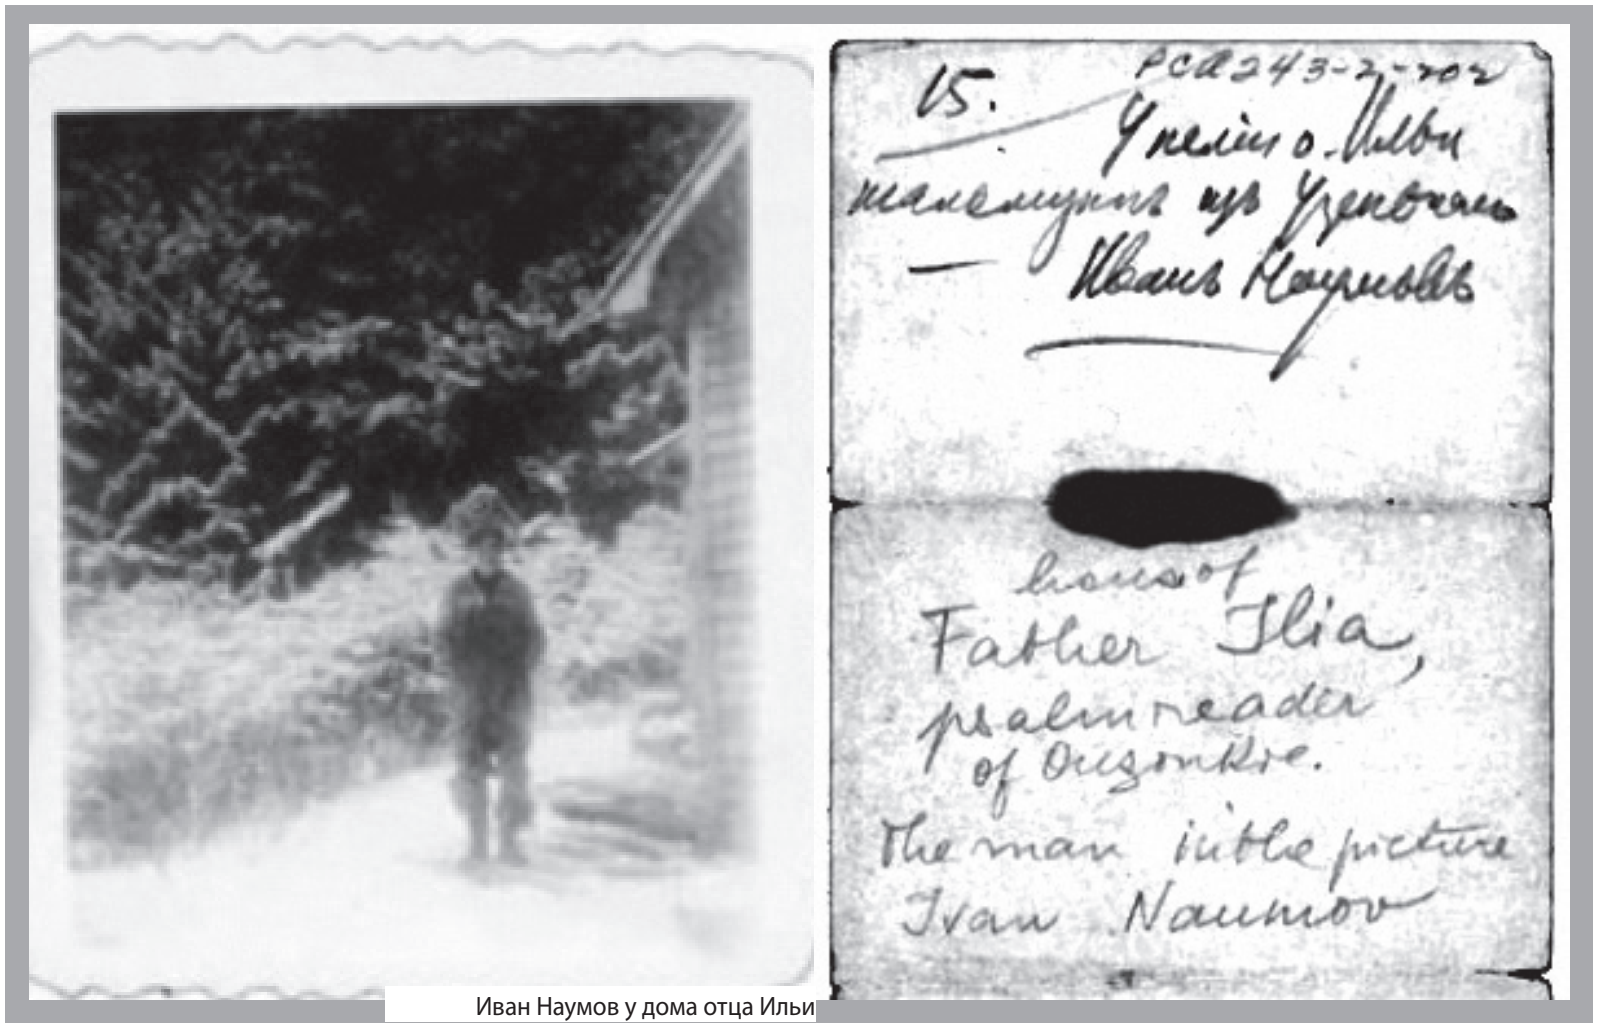 15.
PCA243-2-202
У келiи о. Ильи
изъ
Иванъ Наумовъ
house of
Father Ilia,
psalm reader
of Ouzinkie.
The man in the picture
Ivan Naumov
Иван Наумов у дома отца Ильи